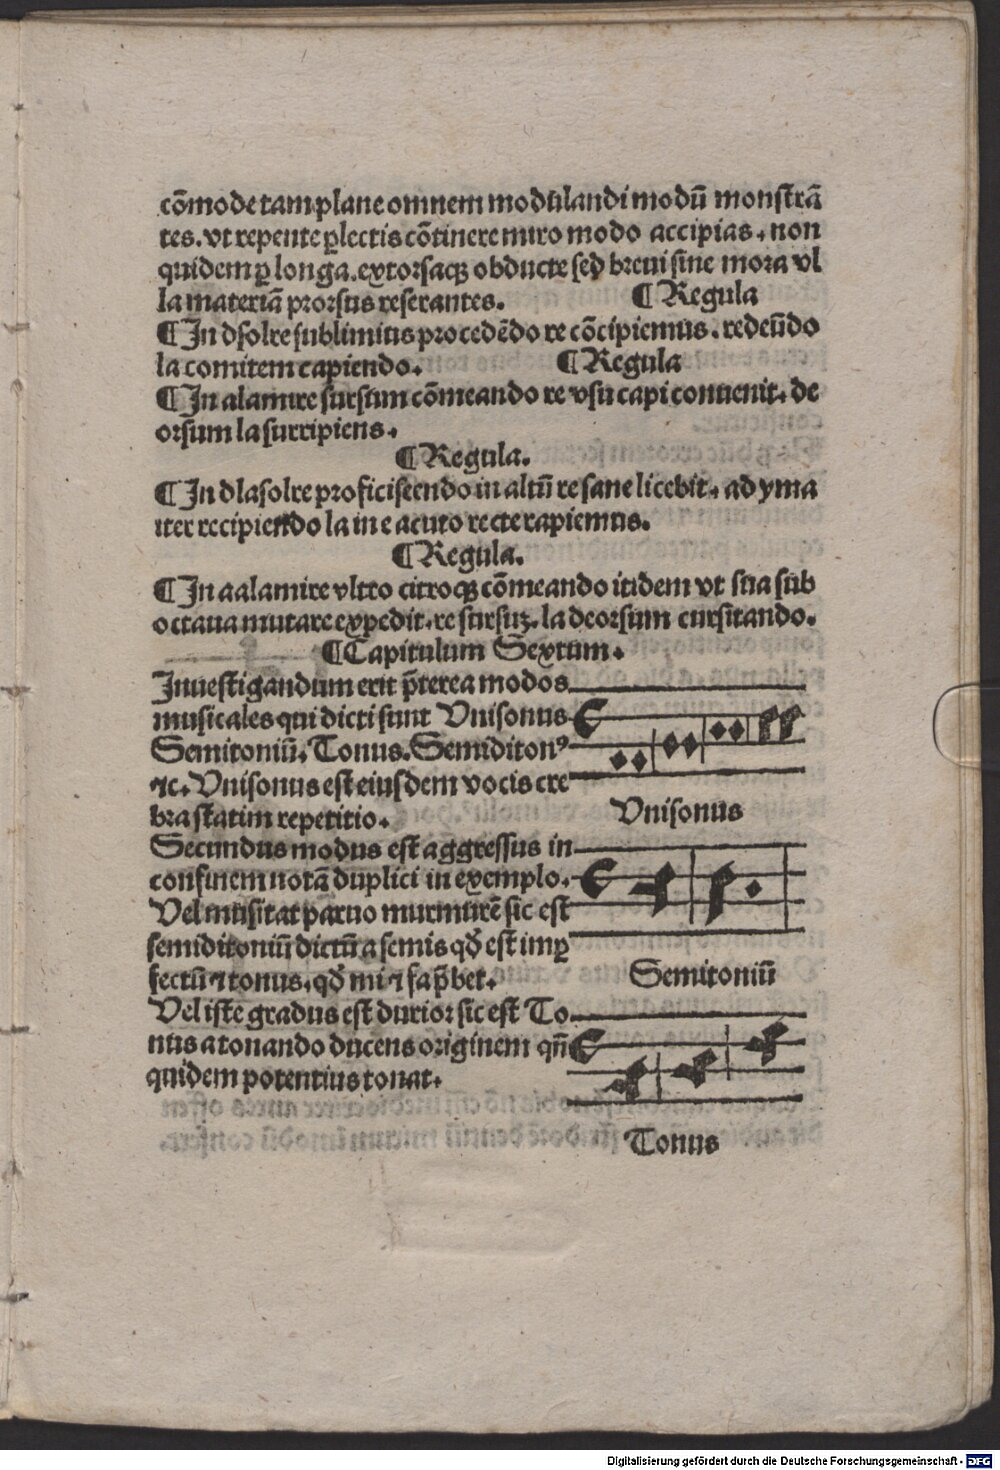 cõmode tam plane omnem modulandi modũ monstrã
tes. vt repente ꝑlectis cõtinere miro modo accipias. non
quidem ꝑ longa. extorsaqꝫ obducte sed breui sine mora vl
la materiã prorsus reserantes. ¶ Regula
¶ In dsolre sublimius procedẽdo re cõcipiemus. redeũdo
la comitem capiendo. ¶ Regula
¶ In alamire sursum cõmeando re vsu capi conuenit. de
orsum la surripiens.
¶ Regula.
¶ In dlasolre proficiscendo in altũ re sane licebit. ad yma
iter recipiendo la in e acuto recte rapiemus.
¶ Regula.
¶ In aalamire vltro citroqꝫ cõmeando itidem vt sua sub
octaua mutare expedit. re sursuꝫ. la deorsum cursitando.
¶ Capitulum Sextum.
Inuestigandum erit p̃terea modos
musicales qui dicti sunt Vnisonus
Semitoniũ. Tonus. Semiditonꝰ
⁊c. Vnisonus est eiusdem vocis cre
bra statim repetitio.
Vnisonus
Secundus modus est aggressus in
confinem notã duplici in exemplo.
Vel musitat paruo murmurẽ sic est
semiditoniũ dictũ a semis qđ est imꝑ
fectũ ⁊ tonus. qđ mi ⁊ fa p̃bet.
Semitoniũ
Vel iste gradus est durior sic est To
nus a tonando ducens originem qñ
quidem potentius tonat.
Tonus
Digitalisierung gefördert durch die Deutsche Forschungsgemeinschaft - DFG